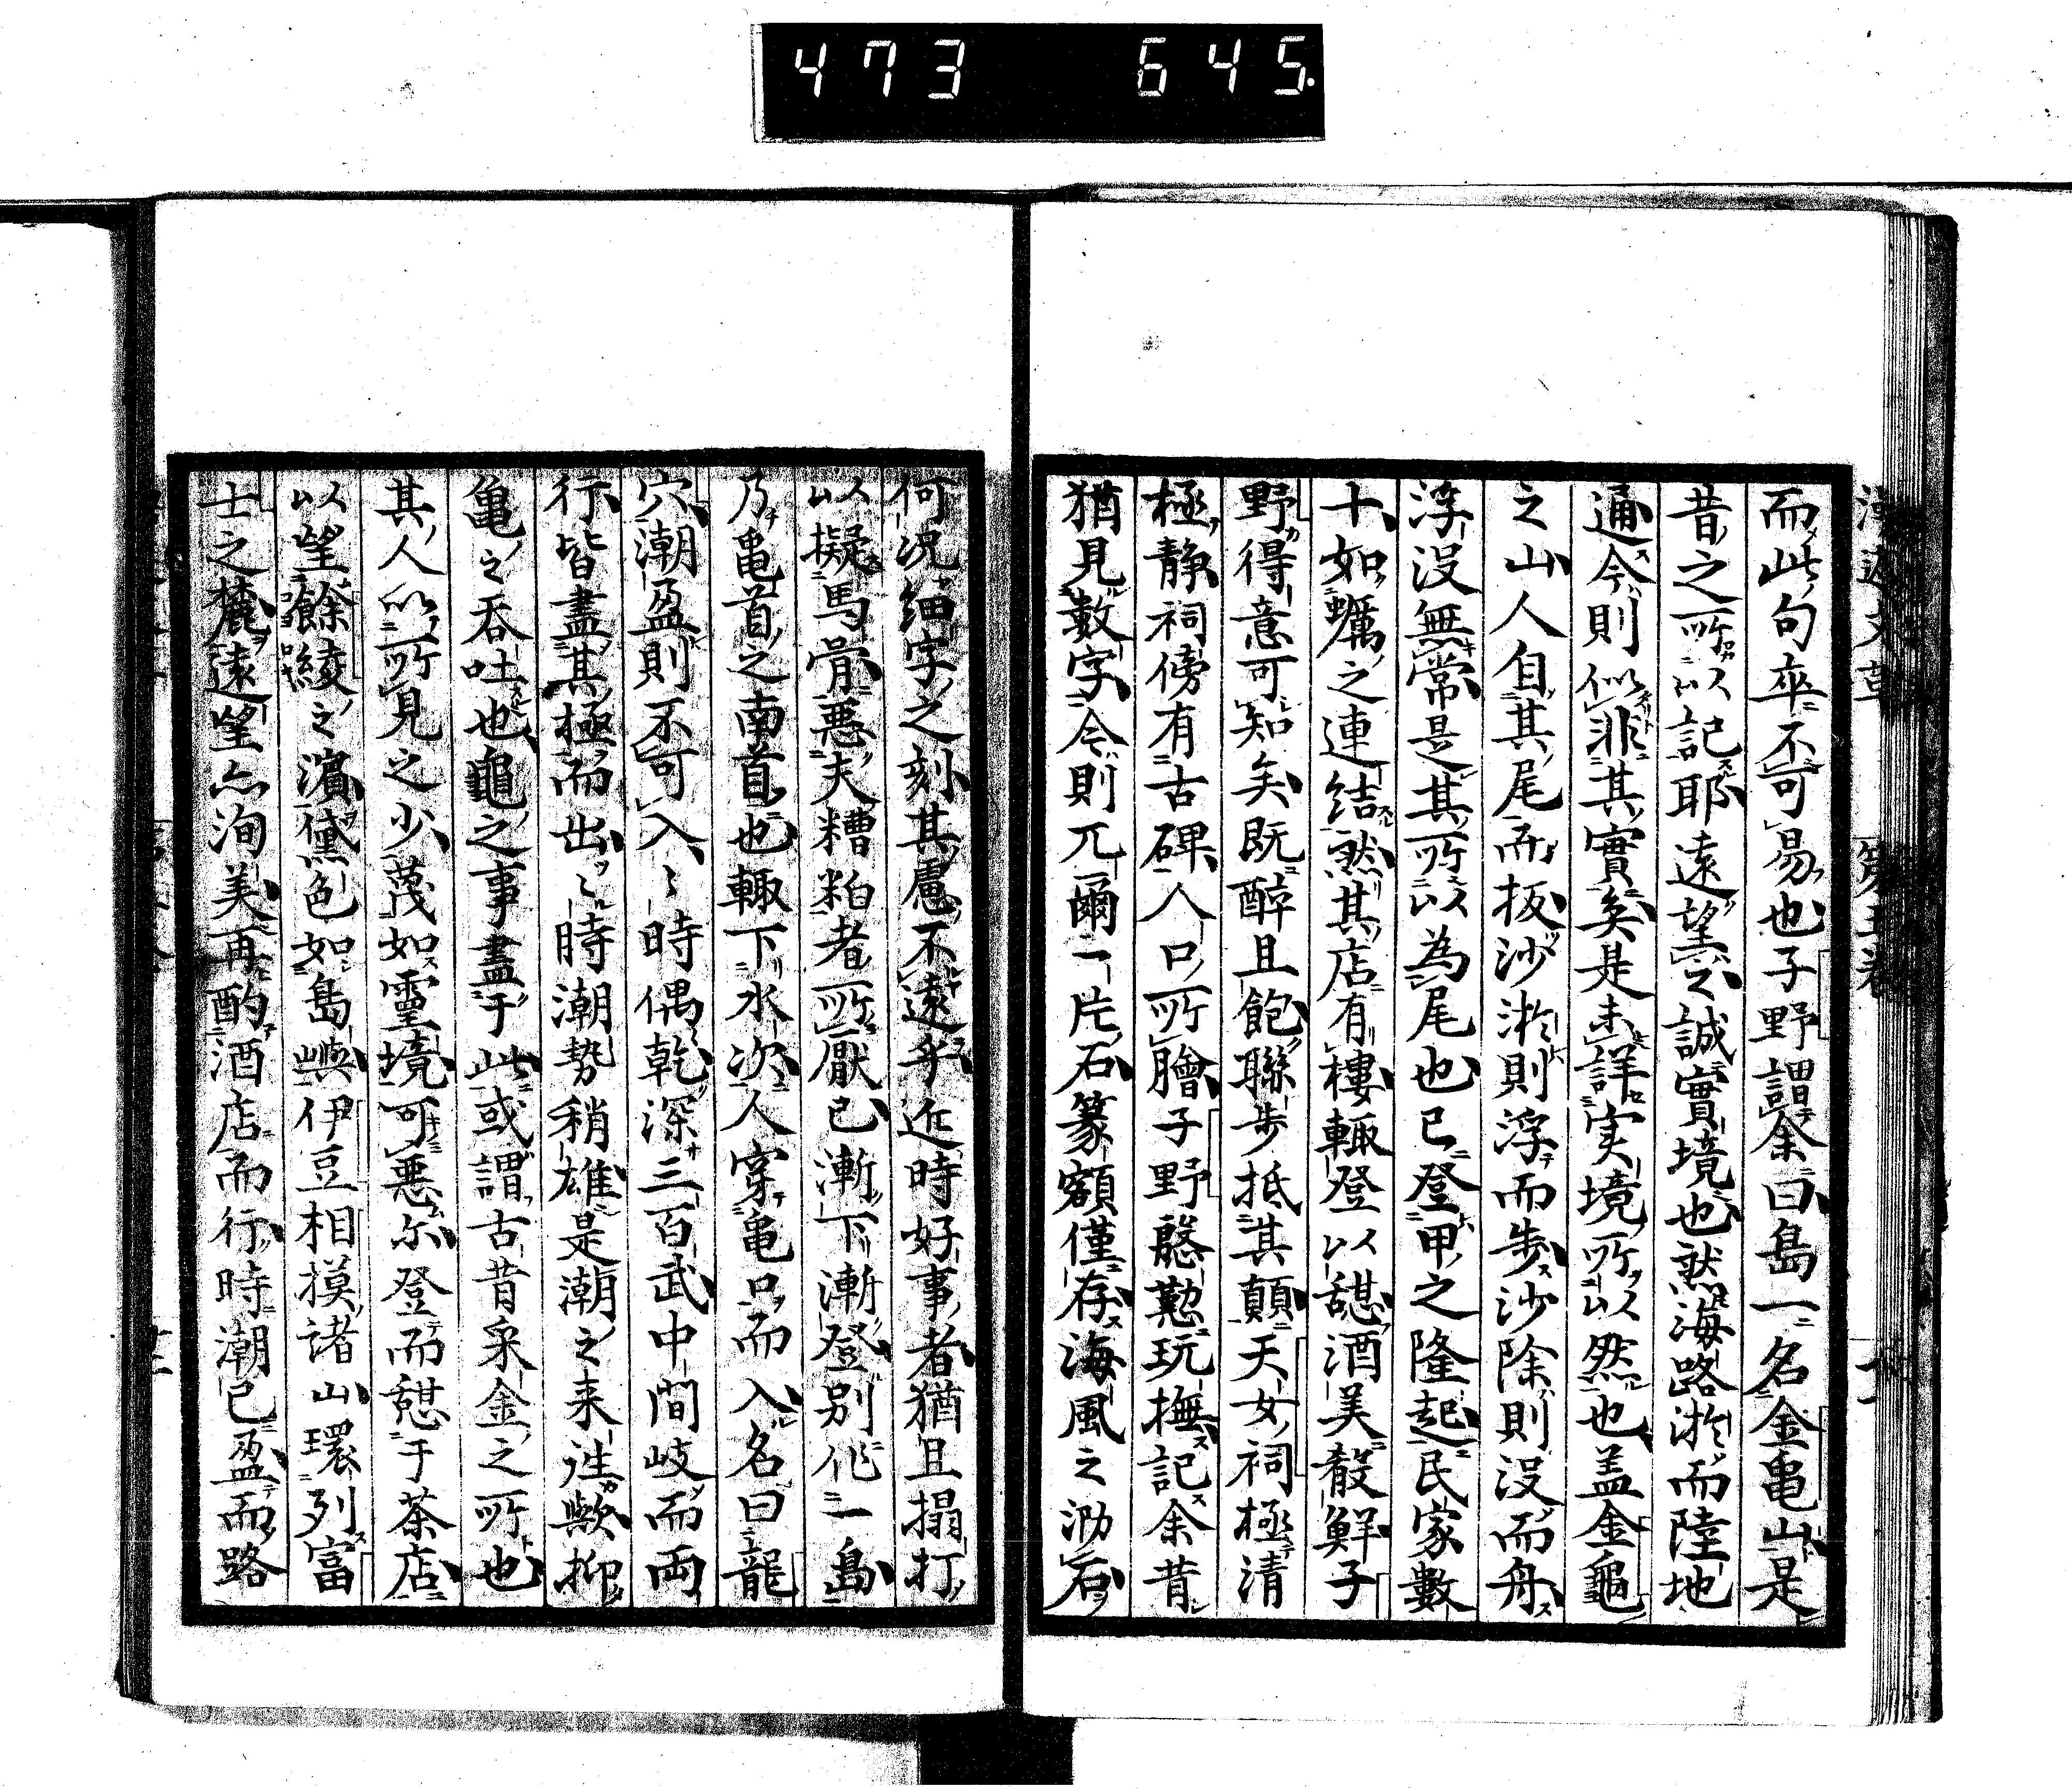 473 645
而此句卒不可易也子野謂余曰島一名金亀山是
昔之所以記耶遠望之誠實境也然海路淤而陸地
通今則似非其實矣是未詳実境所以然也盖金龜
之山人自其尾而扳沙淤則浮而歩沙除則没而舟
浮没無常是其所以為尾也已登甲之隆起民家數
十如蠣之連結然其店有樓輙登以憇酒美殽鮮子
野得意可知矣既醉且飽聯歩抵其顛天女祠極清
極静祠傍有古碑人口所膾子野慇懃玩撫記余昔
猶見數字今則兀爾一片石篆額僅存海風之泐石
何況細字之刻其慮不遠乎近時好事者猶且搨打
以擬馬骨悪夫糟粕者所厭已漸下漸登別作一島
乃亀首之南首也輙下水次人穿亀口而入名曰龍
穴潮盈則不可入〻時偶乾深三百武中間岐而両
行皆盡其極而出〻時潮勢稍雄是潮之来往歟抑
亀之呑吐也龜之事盡于此或謂古昔采金之所也
其人以所見之少蔑如靈境可惡尓登而憇于茶店
以望餘綾之濵黛色如島嶼伊豆相摸諸山環列富
士之麓遠望亦洵美再酌酒店而行時潮已盈而路